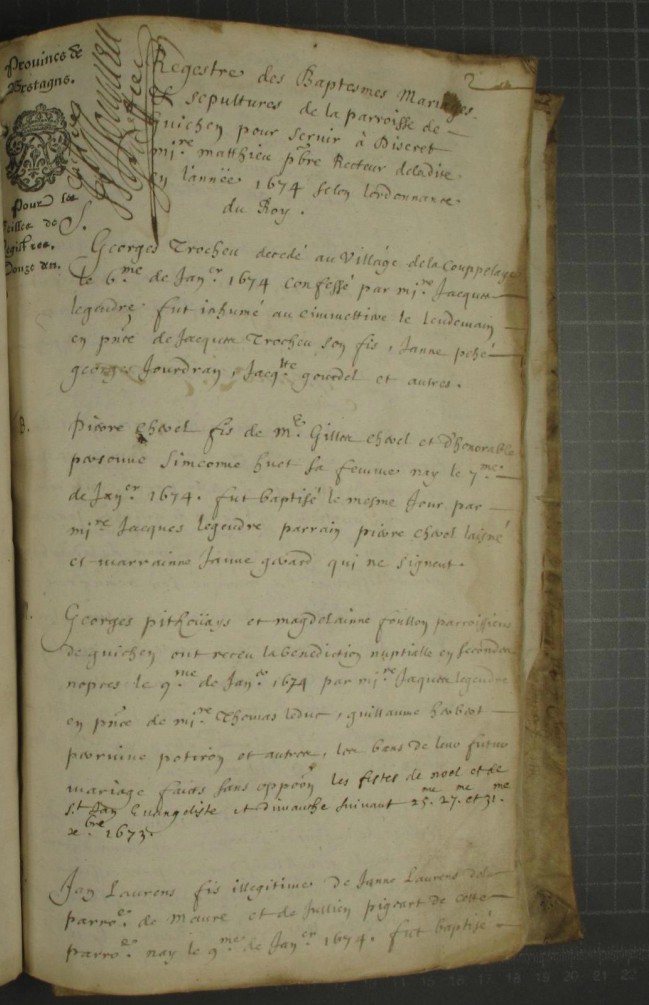 Prouince de
Bretagne.
Pour les
feilles de
Registres.
Douze den.
2
Regestre des Baptesmes Mariages
& sepultures de la parroisse de
Guichen pour seruir à Discret
mi.re matthieu pbre Recteur deladite
en l'année 1674 selon lordonnance
du Roy.
S.
Georges Trocheu decedé au Village dela Couppelaye
le 6.me de Jan.er 1674 Confessé par mi.re Jacques
legendre fut inhumé au cimmettiere le lendemain
en pnce de Jacques Trocheu son fis, Janne
georges Jourdran, Jacq.tte gourdel et autres.
B.
Pierre chevel fis de M.e Gilles chevel et d'honorable
personne Simeonne huet sa femme nay le 7.me
de Jan.er 1674. fut baptisé le mesme Jour par
mi.re Jacques legendre parrain pierre chevel laisné
et marrainne Janne gerard qui ne signent.
Georges pithoüays et magdelainne foüllon parroissiens
de guichen ont receu la benediction nuptialle en secondes
nopces le 9.me de Jan.er 1674 par mi.re Jaques legendre
en pnce de mi.re Thomas leduc, guillaume herbert
perrinne potiron et autres, les bans de leur futur
mariage faicts sans oppoõn les festes de noel et de
S.t Jan Euangeliste et dimanche suiuant 25.me 27.me et 31.me
xbre 1673.
Jan Laurens fis illegitime de Janne Laurens dela
parro.e de Maure et de Jullien pigeart de cette
parro.e nay le 9.me de Jan.er 1674. fut baptisé